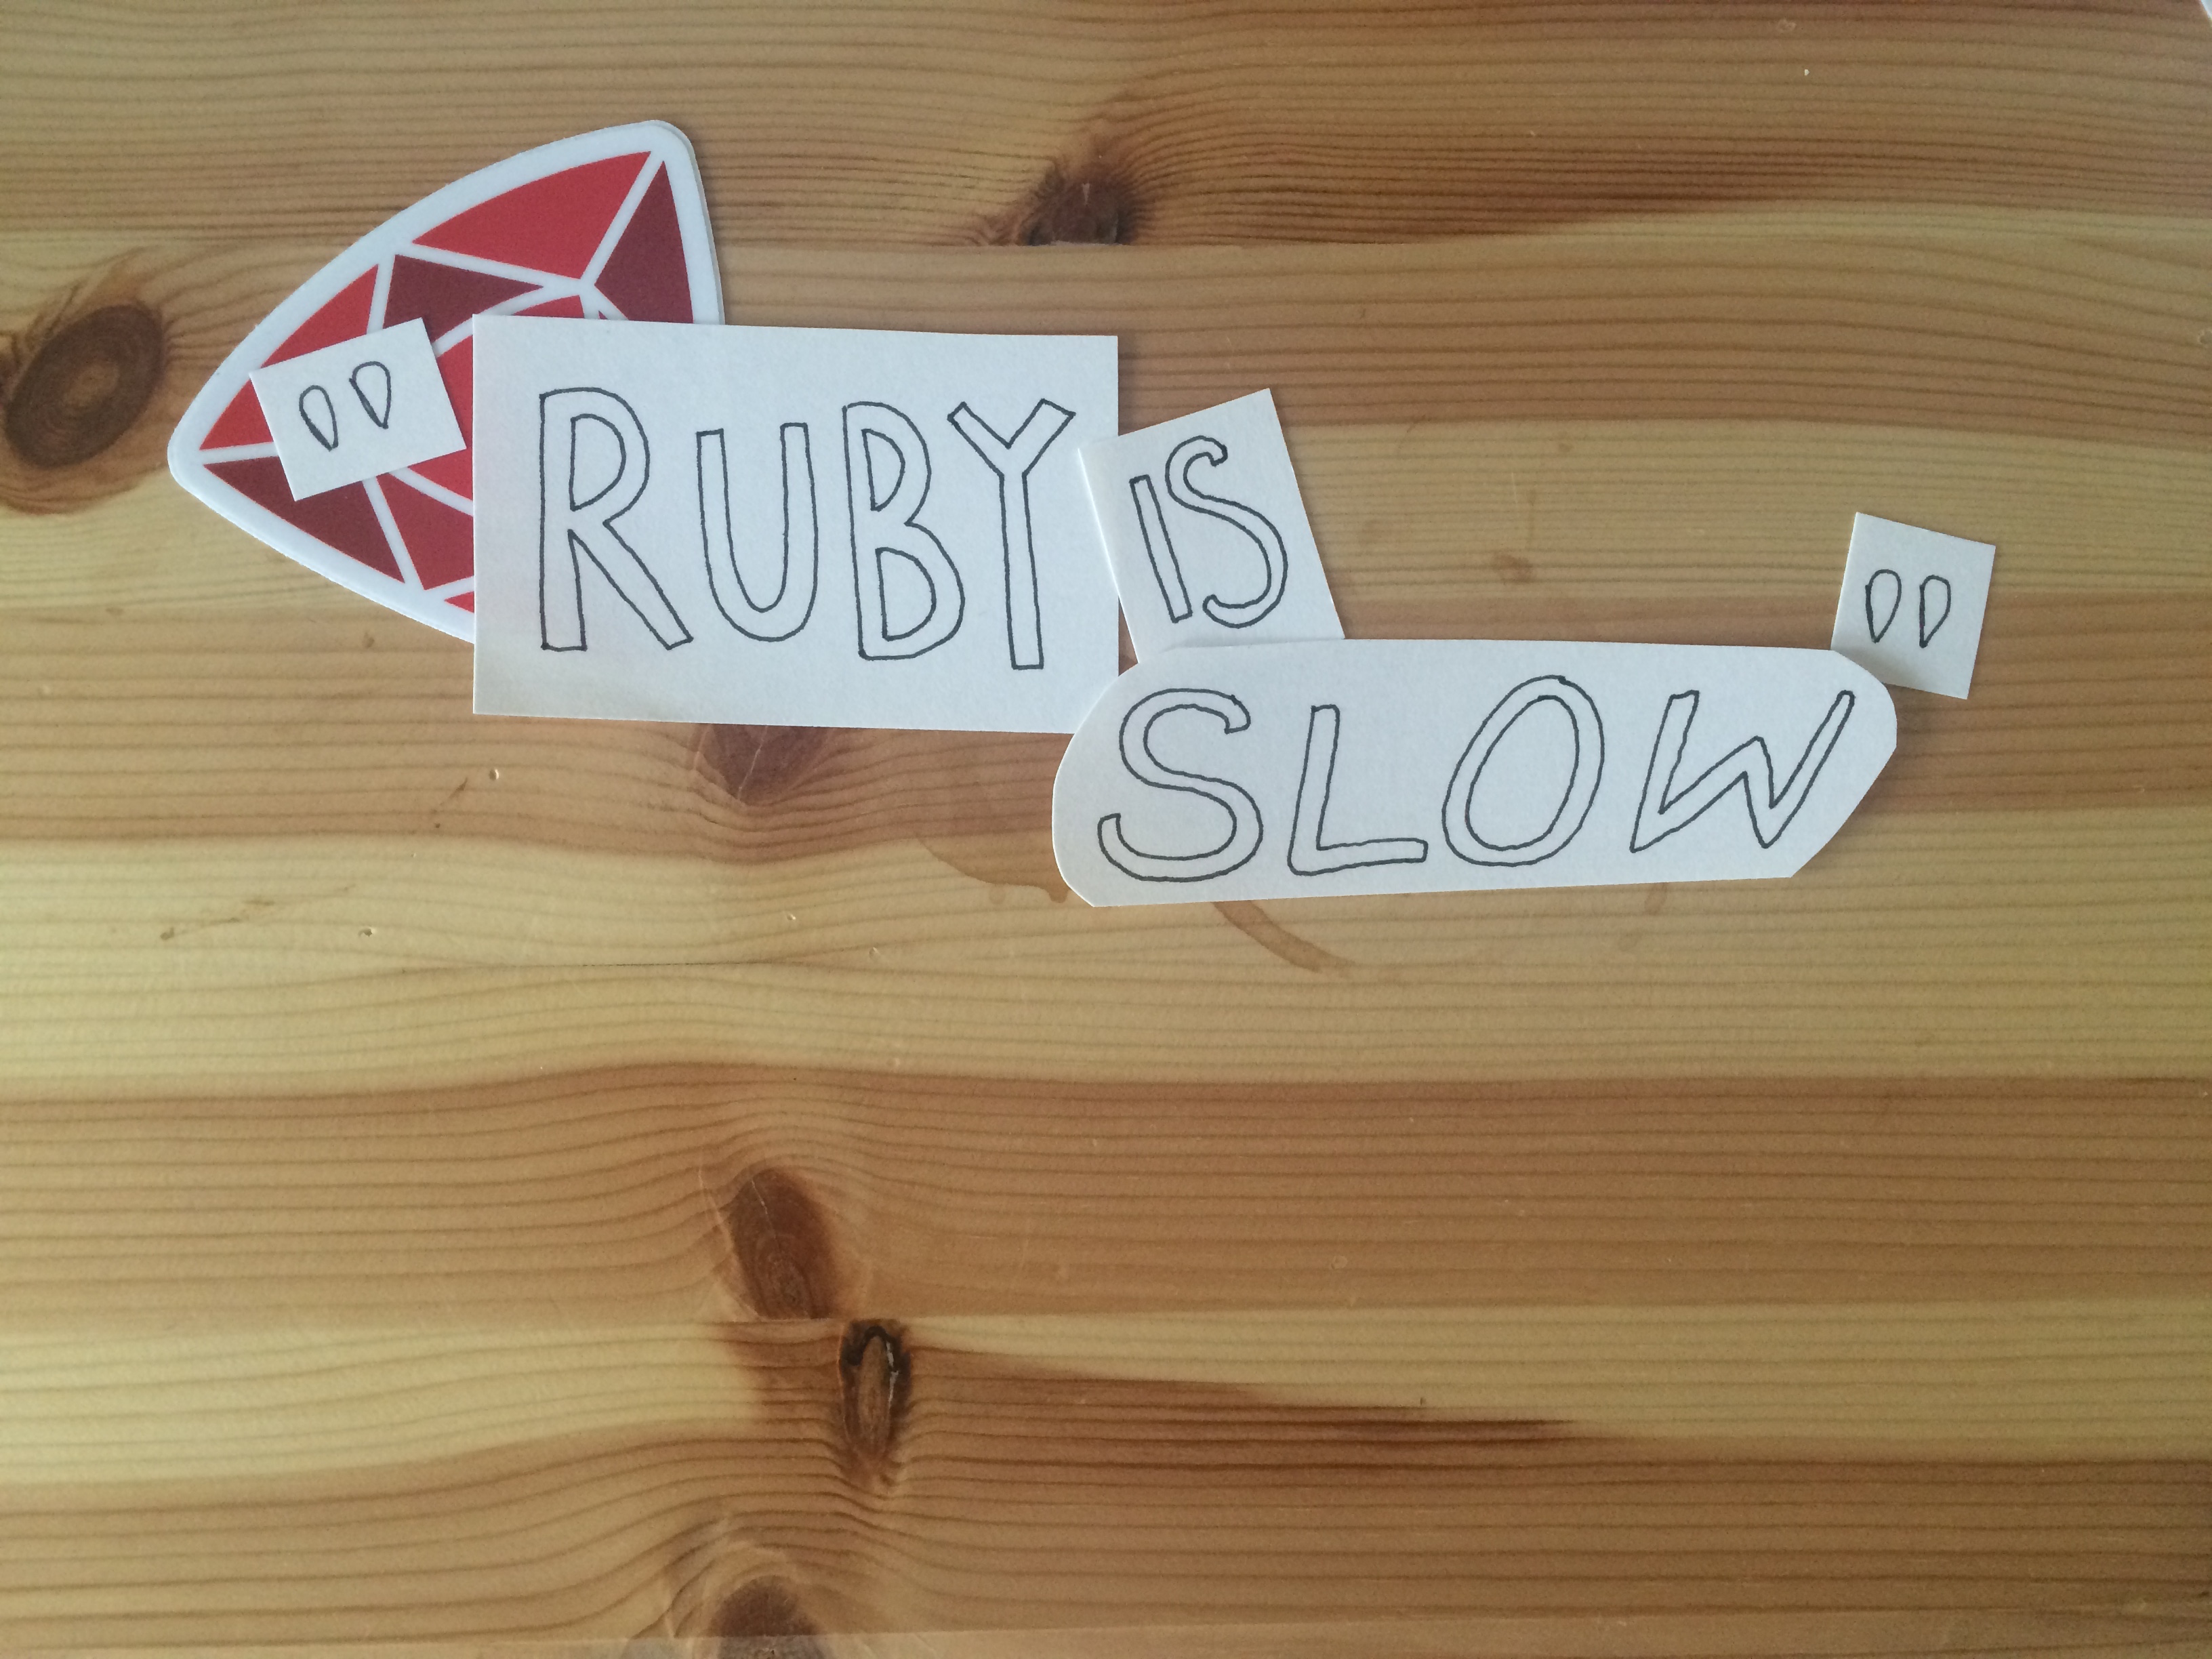 "RUBY IS
SLOW"